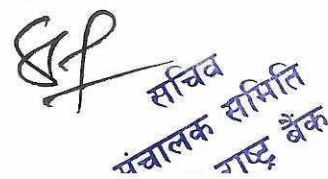 सचिव
संचालक समिति
राष्ट्र बैंक